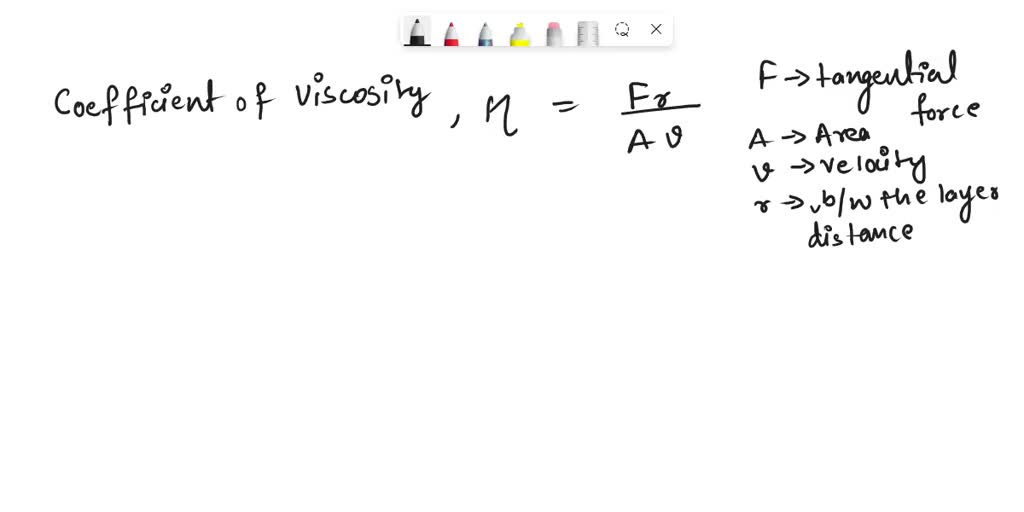 Coefficient of viscosity, η = Fr / Av
F → tangential
force
A → Area
v → velocity
r → b/w the layer
distance